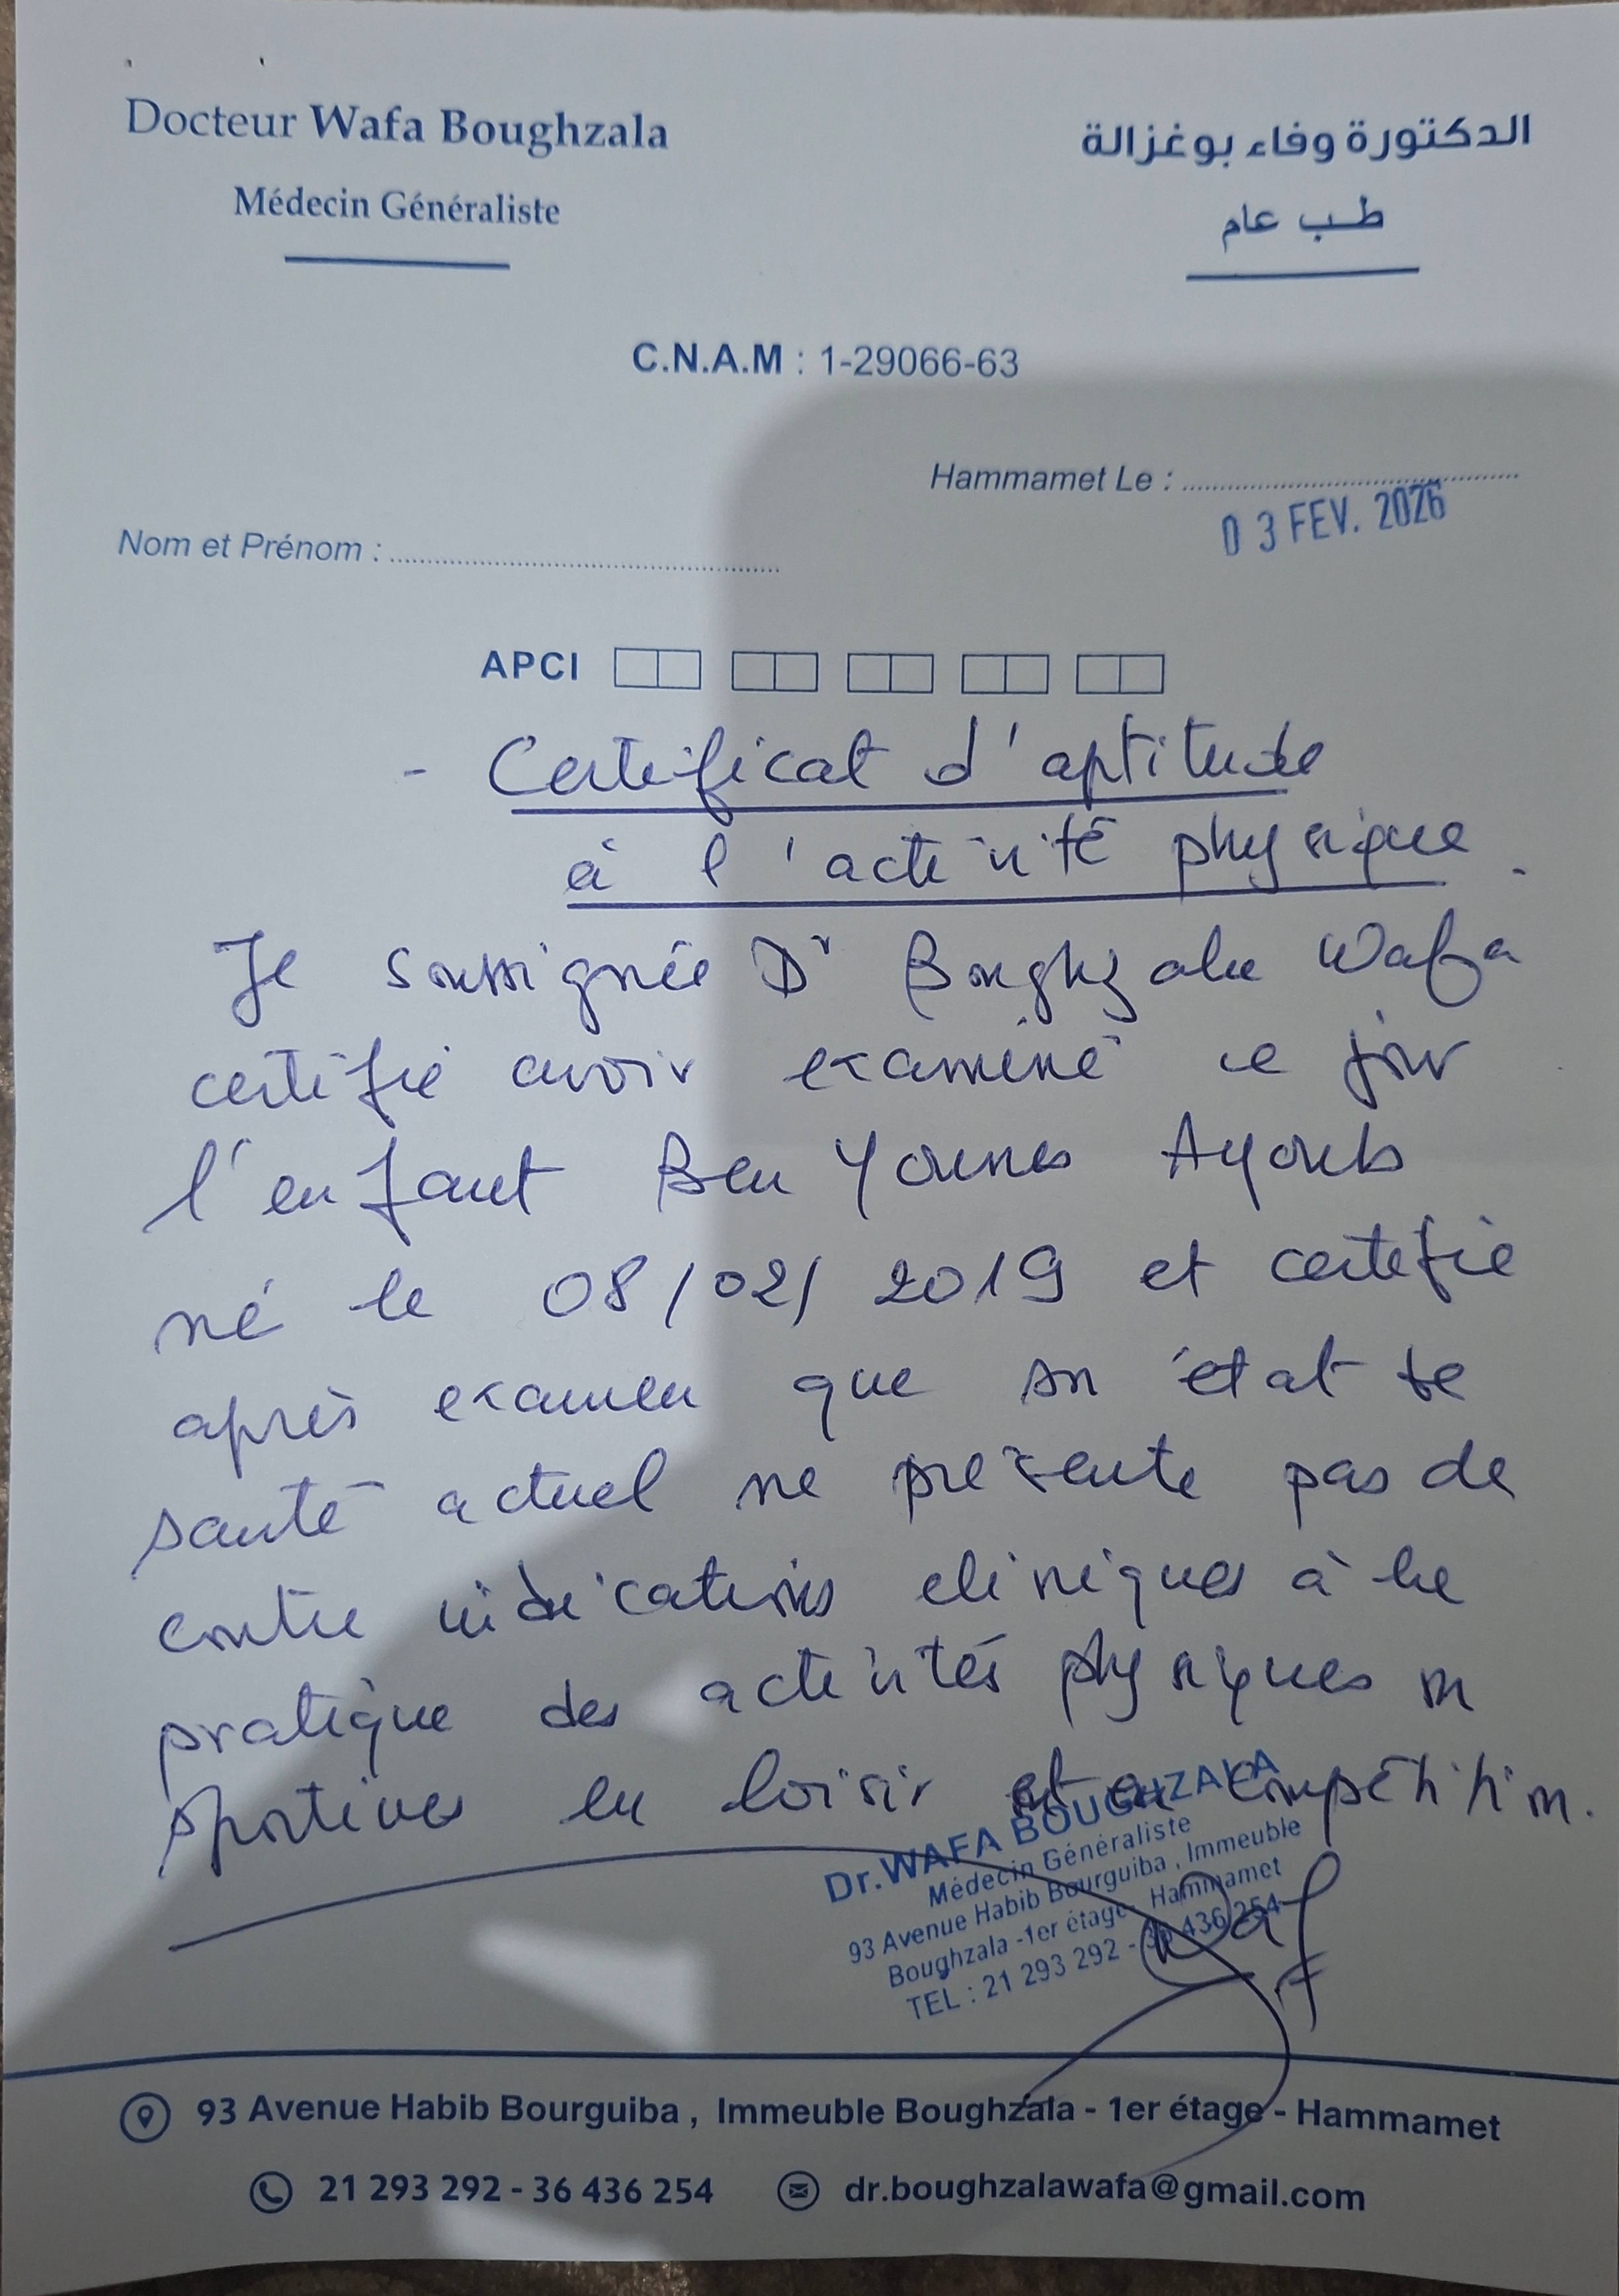 Docteur Wafa Boughzala
الدكتورة وفاء بوغزالة
Médecin Généraliste
طب عام
C.N.A.M : 1-29066-63
Hammamet Le :
03 FEV. 2026
Nom et Prénom :
APCI
- Certificat d'aptitude
à l'activité physique.
Je soussignée Dr Boughzala Wafa
certifie avoir examiné ce jour
l'enfant Ben Younes Ayoub
né le 08/02/2019 et certifie
après examen que son état de
santé actuel ne présente pas de
contre indications cliniques à la
pratique des activités physiques ou
sportives en loisir et en compétition.
Dr.WAFA BOUGHZALA
Médecin Généraliste
93 Avenue Habib Bourguiba , Immeuble
Boughzala -1er étage - Hammamet
TEL : 21 293 292 - 36 436 254
93 Avenue Habib Bourguiba , Immeuble Boughzala - 1er étage - Hammamet
21 293 292 - 36 436 254
dr.boughzalawafa@gmail.com